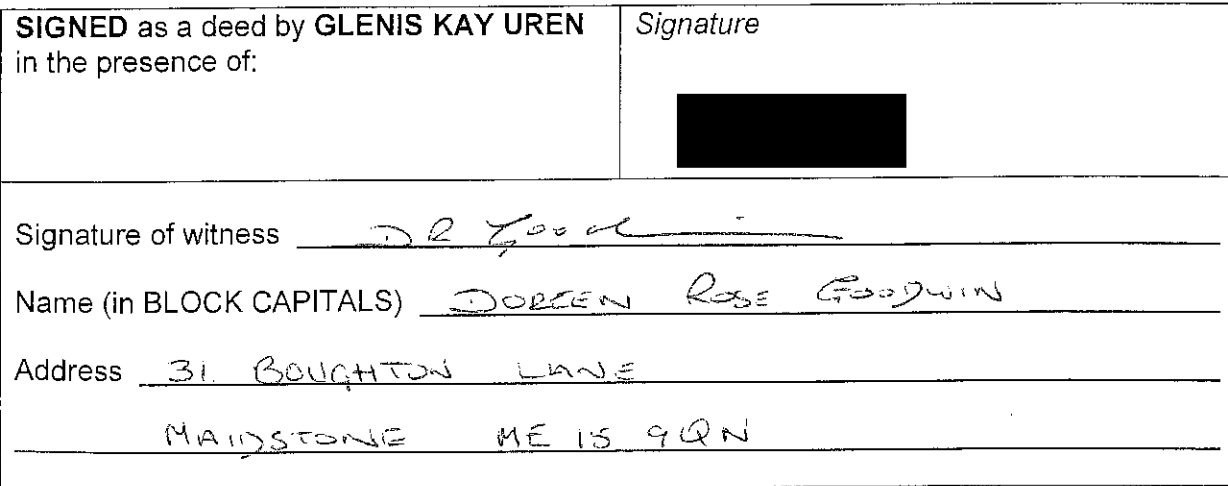 SIGNED as a deed by GLENIS KAY UREN
in the presence of:
Signature
Signature of witness D R Good
Name (in BLOCK CAPITALS) DOREEN ROSE GOODWIN
Address 31. BOUGHTON LANE
MAIDSTONE ME 15 9QN